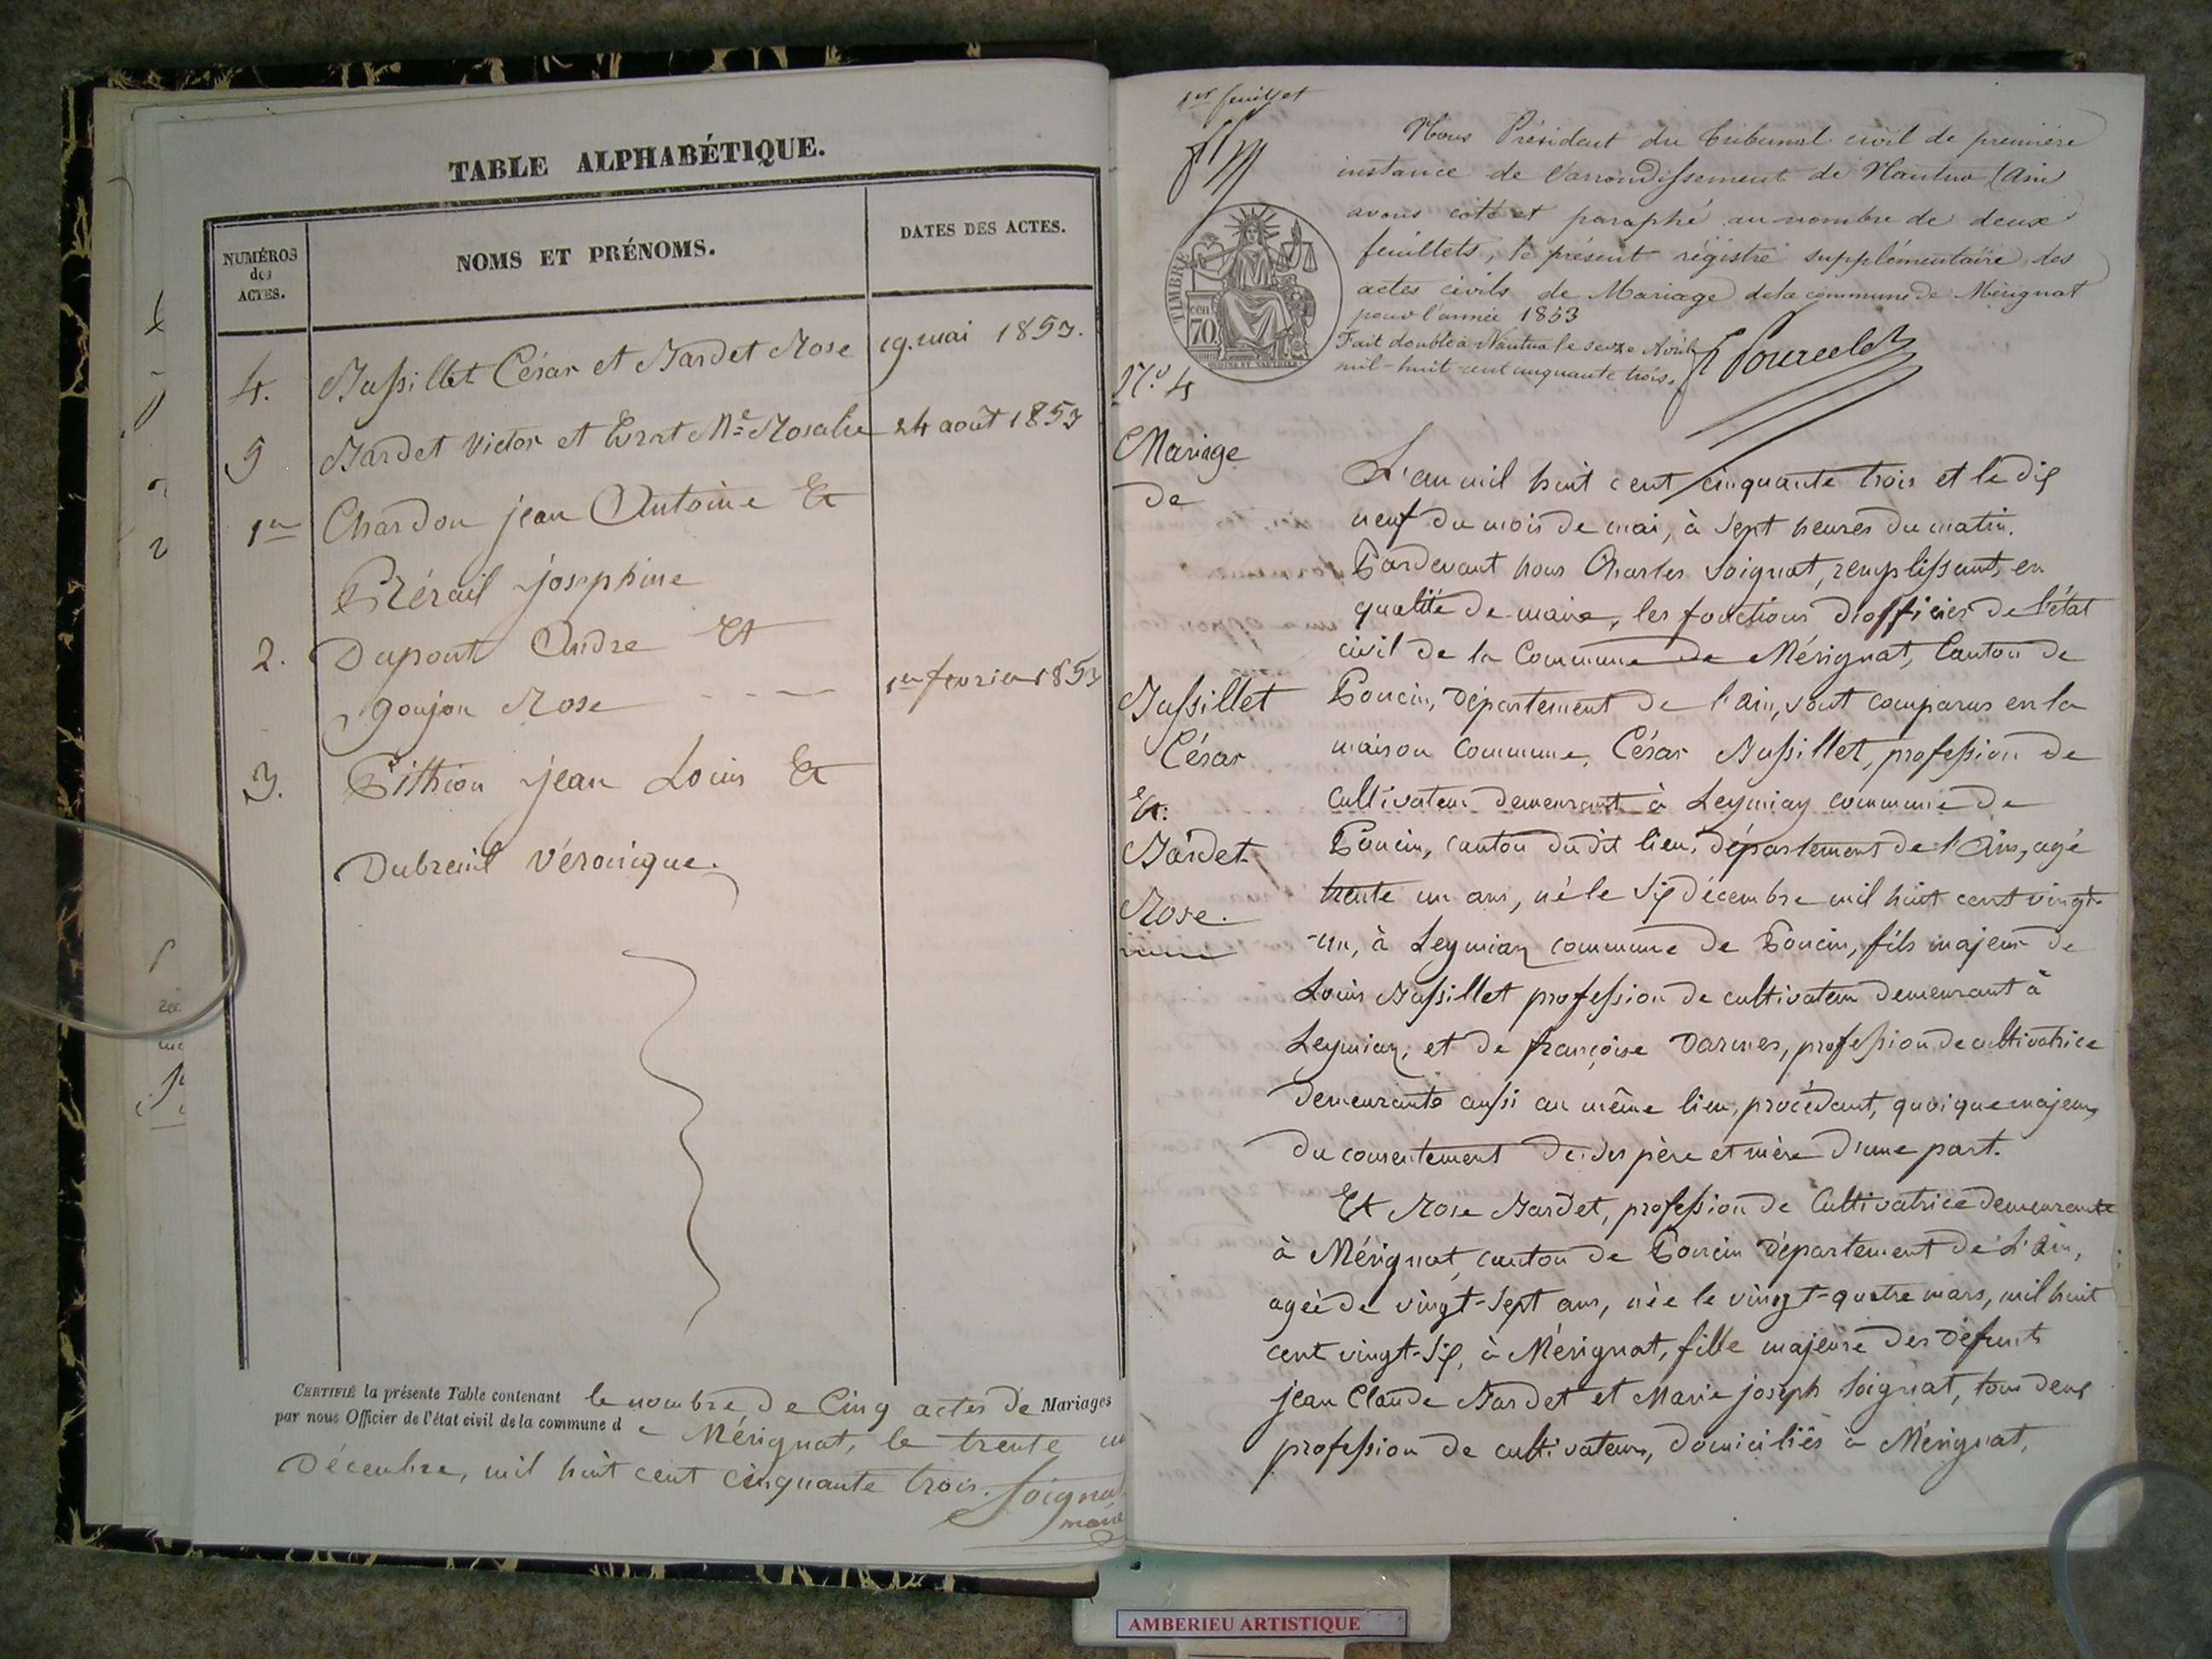 TABLE ALPHABÉTIQUE.
NUMÉROS
des
ACTES.
NOMS ET PRÉNOMS.
DATES DES ACTES.
4. Bussillet César et Bardet Rose 19. mai 1853.
5 Bardet Victor et Evrat Me Rosalie 24 août 1853
1er Chardon jean Antoine Et
Prérail josephine
2. Dupont Andre Et
goujon Rose - - - 1er fevrier 1853
3. Pithion jean Louis Et
Dubreuil Véronique.
CERTIFIÉ la présente Table contenant le nombre de Cinq actes de Mariages
par nous Officier de l'état civil de la commune d e Mérignat, le trente un
Décembre, mil huit cent cinquante trois. Soignat
maire
1er feuillet
Nous Président du tribunal civil de première
instance de l'arrondissement de Nantua (Ain
avons coté et paraphé au nombre de deux
feuillets, le présent régistre supplémentaire des
actes civils de Mariage de la commune de Mérignat
pour l'année 1853
Fait double à Nantua le seize Avril
mil-huit-cent cinquante trois.
TIMBRE
70
N.o 4
Mariage
de
Bussillet
César
Et
Bardet
Rose.
L'an mil huit cent cinquante trois et le dix
neuf du mois de mai, à sept heures du matin.
Pardevant nous Charles Soignat, remplissant, en
qualité de maire, les fonctions d'officier de l'état
civil de la Commune de Mérignat, Canton de
Poncin, département de l'Ain, sont comparus en la
maison Commune, César Bussillet, profession de
Cultivateur demeurant à Leymiay commune de
Poncin, canton dudit lieu, département de l'Ain, agé
trente un ans, né le six décembre mil huit cent vingt-
-un, à Leymiay commune de Poncin, fils majeur de
Louis Bussillet profession de cultivateur demeurant à
Leymiay, et de françoise Darmes, profession de cultivatrice
demeurante aussi au même lieu, procédant, quoique majeur,
du consentement de ses père et mère d'une part.
Et Rose Bardet, profession de Cultivatrice demeurante
à Mérignat, canton de Poncin département de L'Ain,
agée de vingt-sept ans, née le vingt-quatre mars, mil huit
cent vingt-six, à Mérignat, fille majeure des défunts
jean Claude Bardet et Marie joseph Soignat, tous deux
profession de cultivateurs, domiciliés à Mérignat,
AMBERIEU ARTISTIQUE